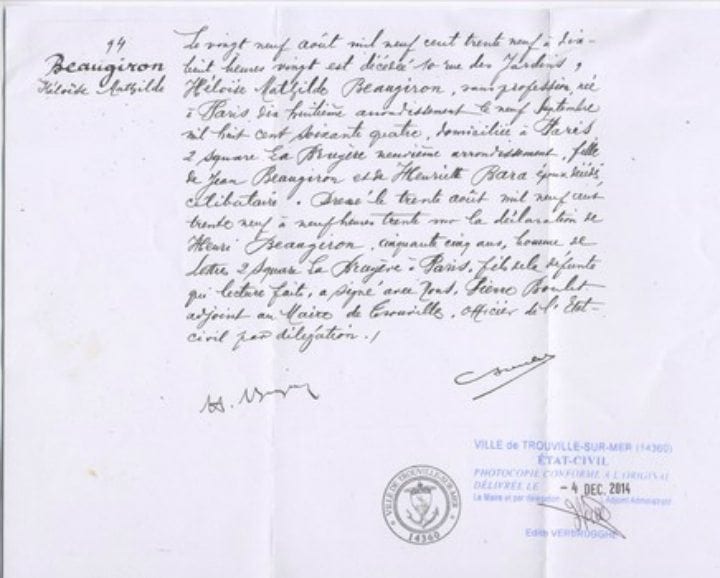 94
Beaugiron
Héloïse Mathilde
Le vingt neuf août mil neuf cent trente neuf à dix-
huit heures vingt est décédée 10 rue des Jardins,
Héloïse Mathilde Beaugiron, sans profession, née
à Paris dix huitième arrondissement le neuf Septembre
mil huit cent soixante quatre, domiciliée à Paris
2 square La Bruyère neuvième arrondissement, fille
de Jean Beaugiron et de Henriette Bara époux décédés
célibataire. Dressé le trente août mil neuf cent
trente neuf à neuf heures trente sur la déclaration de
Henri Beaugiron, cinquante cinq ans, homme de
lettres 2 square La Bruyère à Paris, fils de la défunte
qui lecture faite, a signé avec Nous, Pierre
adjoint au Maire de Trouville, Officier de l'Etat-
civil par délégation./
VILLE de TROUVILLE-SUR-MER (14360)
ÉTAT-CIVIL
PHOTOCOPIE CONFORME A L'ORIGINAL
DÉLIVRÉE LE - 4 DEC. 2014
Le Maire et par délégation Adjoint Administratif
Edith VERBRUGGHE
VILLE DE TROUVILLE-SUR-MER
14360